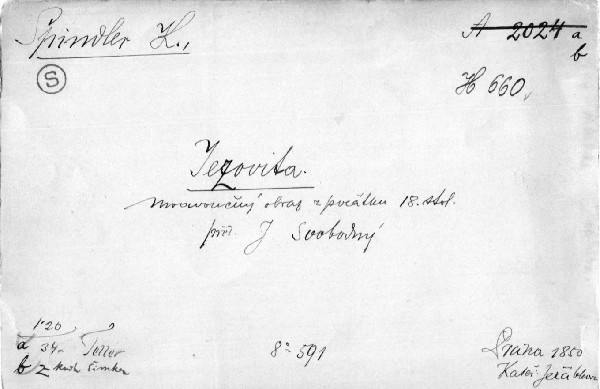 Spindler K.,
A 2024 a
b
S
H 660,
Jezovita.
Mravoučný obraz z počátku 18. stol.
přel. J Svobodný
1·20
a 34- Teller
b z knih Šimka
8° 591
Praha 1850
Kateř. Jeřábková